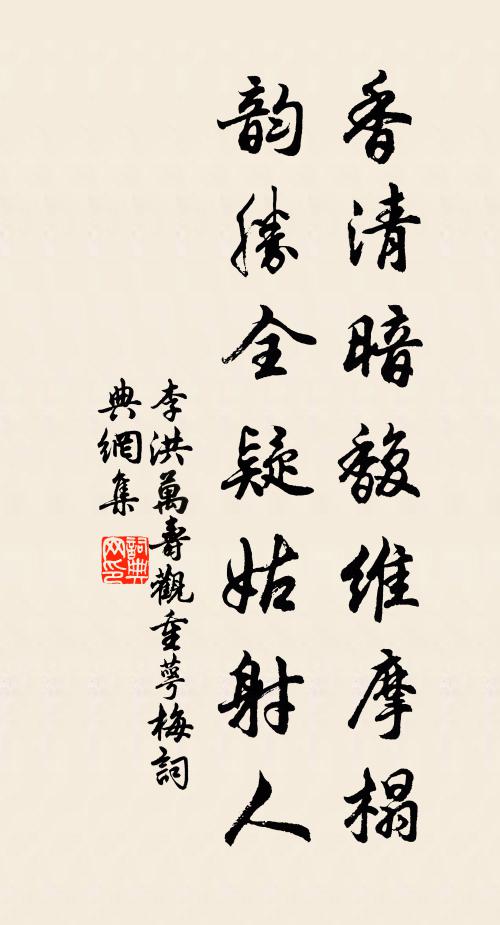 香清暗馥維摩榻
韵勝全疑姑射人
李洪萬壽觀重萼梅詞
典網集
詞典
网印